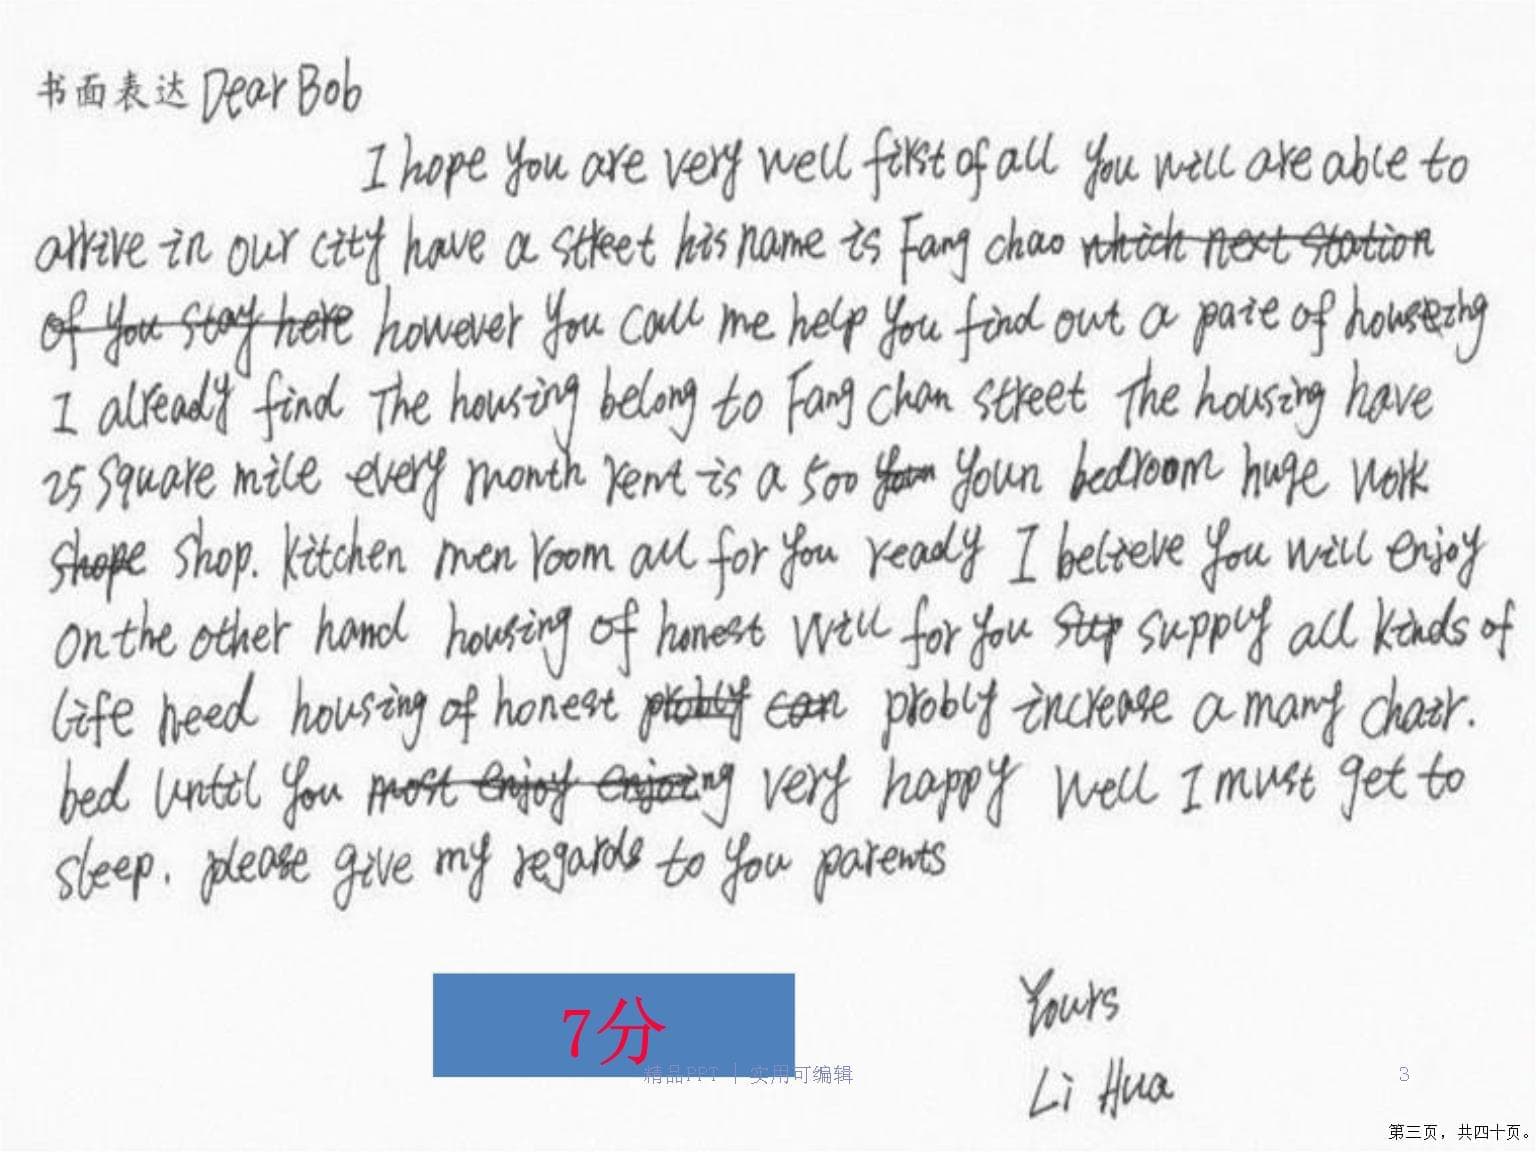 书面表达 Dear Bob
I hope you are very well first of all you will are able to
arrive in our city have a street his name is Fang chao which next station
of you stay here however you call me help you find out a paie of houseing
I already find The housing belong to Fang chan street The housing have
25 square mile every month rent is a 500 your Youn bedroom huge work
shope shop. kitchen men room all for you ready I believe you will enjoy
on the other hand housing of honest will for you sup supply all kinds of
life need housing of honest probly can probly increase a many chair.
bed until you most enjoy enjoing very happy well I must get to
sleep. please give my regards to you parents
Yours
Li Hua
7分
精品PPT | 实用可编辑
3
第三页，共四十页。